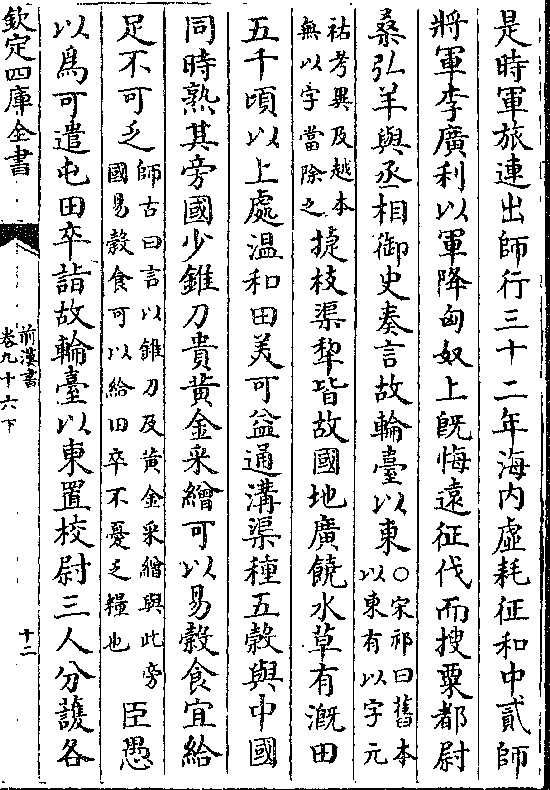 是時軍旅連出師行三十二年海内虛耗征和中貳師
將軍李廣利以軍降匈奴上既悔遠征伐而搜粟都尉
桑弘羊與丞相御史奏言故輪臺以東○宋祁曰舊本以東有以字元
祐考異及越本無以字當除之捷枝渠犂皆故國地廣饒水草有溉田
五千頃以上處温和田美可益通溝渠種五穀與中國
同時熟其旁國少錐刀貴黄金采繒可以易穀食宜給
足不可乏師古曰言以錐刀及黄金采繒與此旁國易穀食可以給田卒不憂乏糧也臣愚
以爲可遣屯田卒詣故輪臺以東置校尉三人分護各
欽定四庫全書
前漢書
卷九十六下
十二